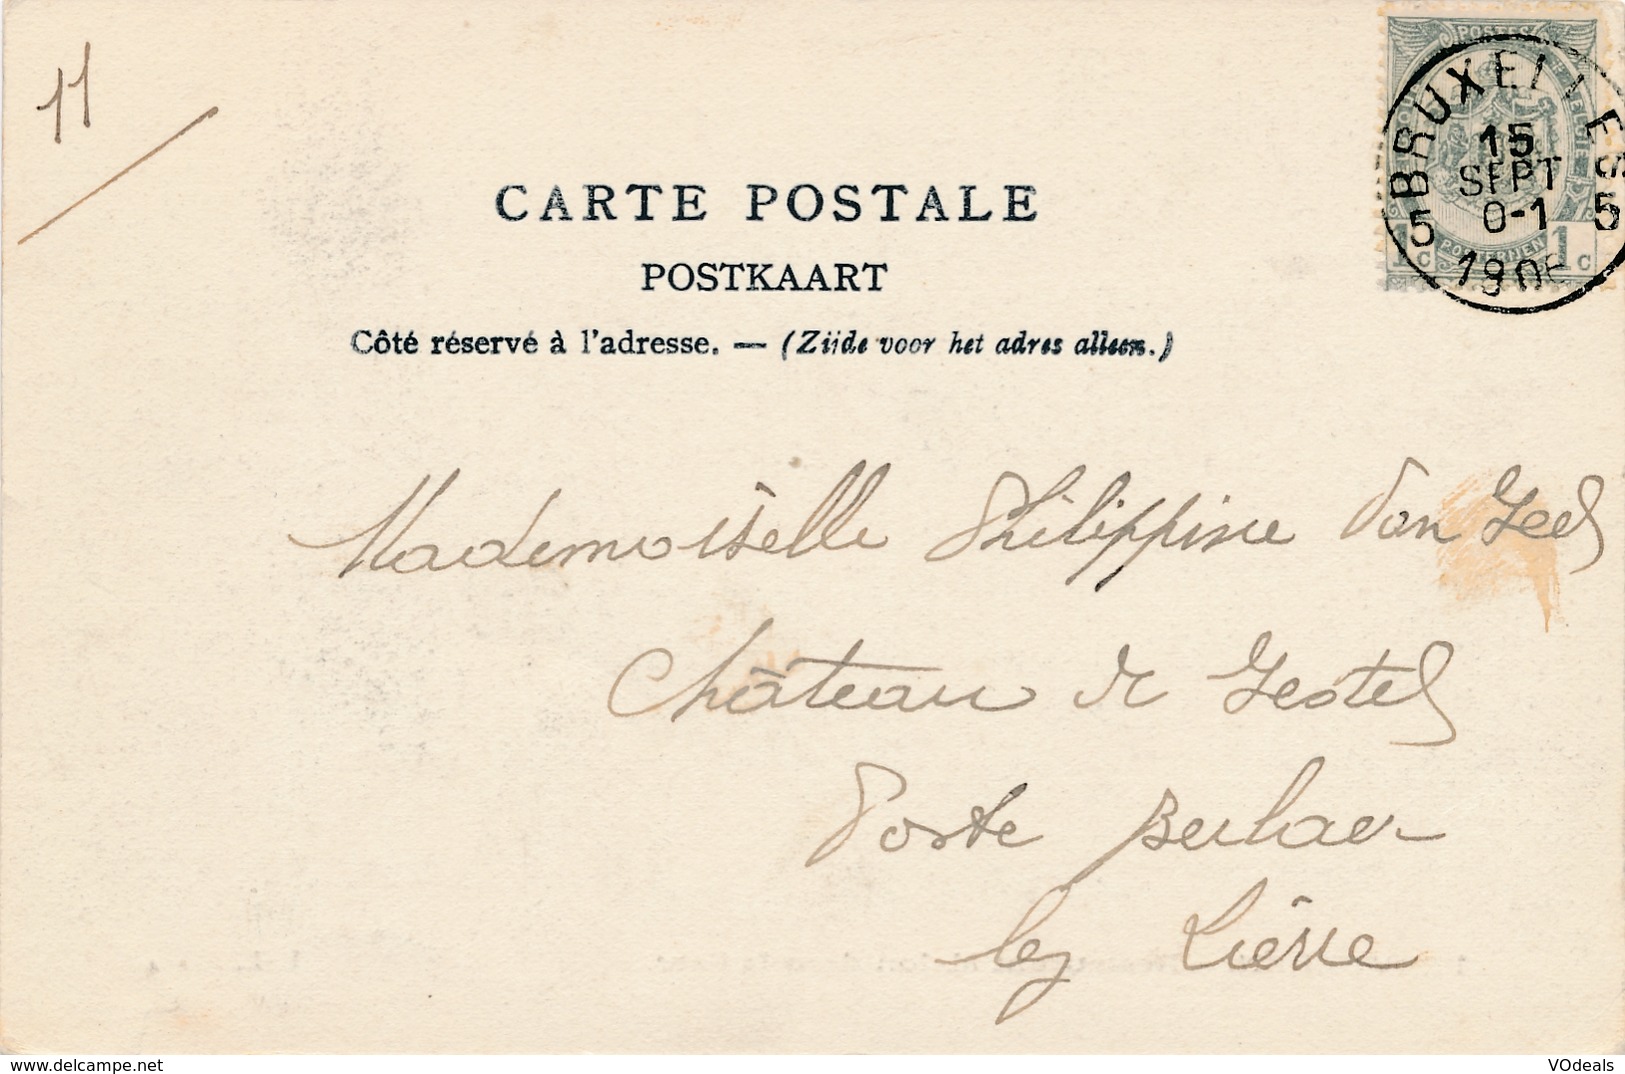 11
POSTES
BRUXELLES
15
SEPT
0-1
5 5
1906
1c 1c
CARTE POSTALE
POSTKAART
Côté réservé à l'adresse. — (Zijde voor het adres alleen.)
Mademoiselle Philippine Van Geel
Château de Gestel
Poste Berlaer
lez Lierre
www.delcampe.net
VOdeals